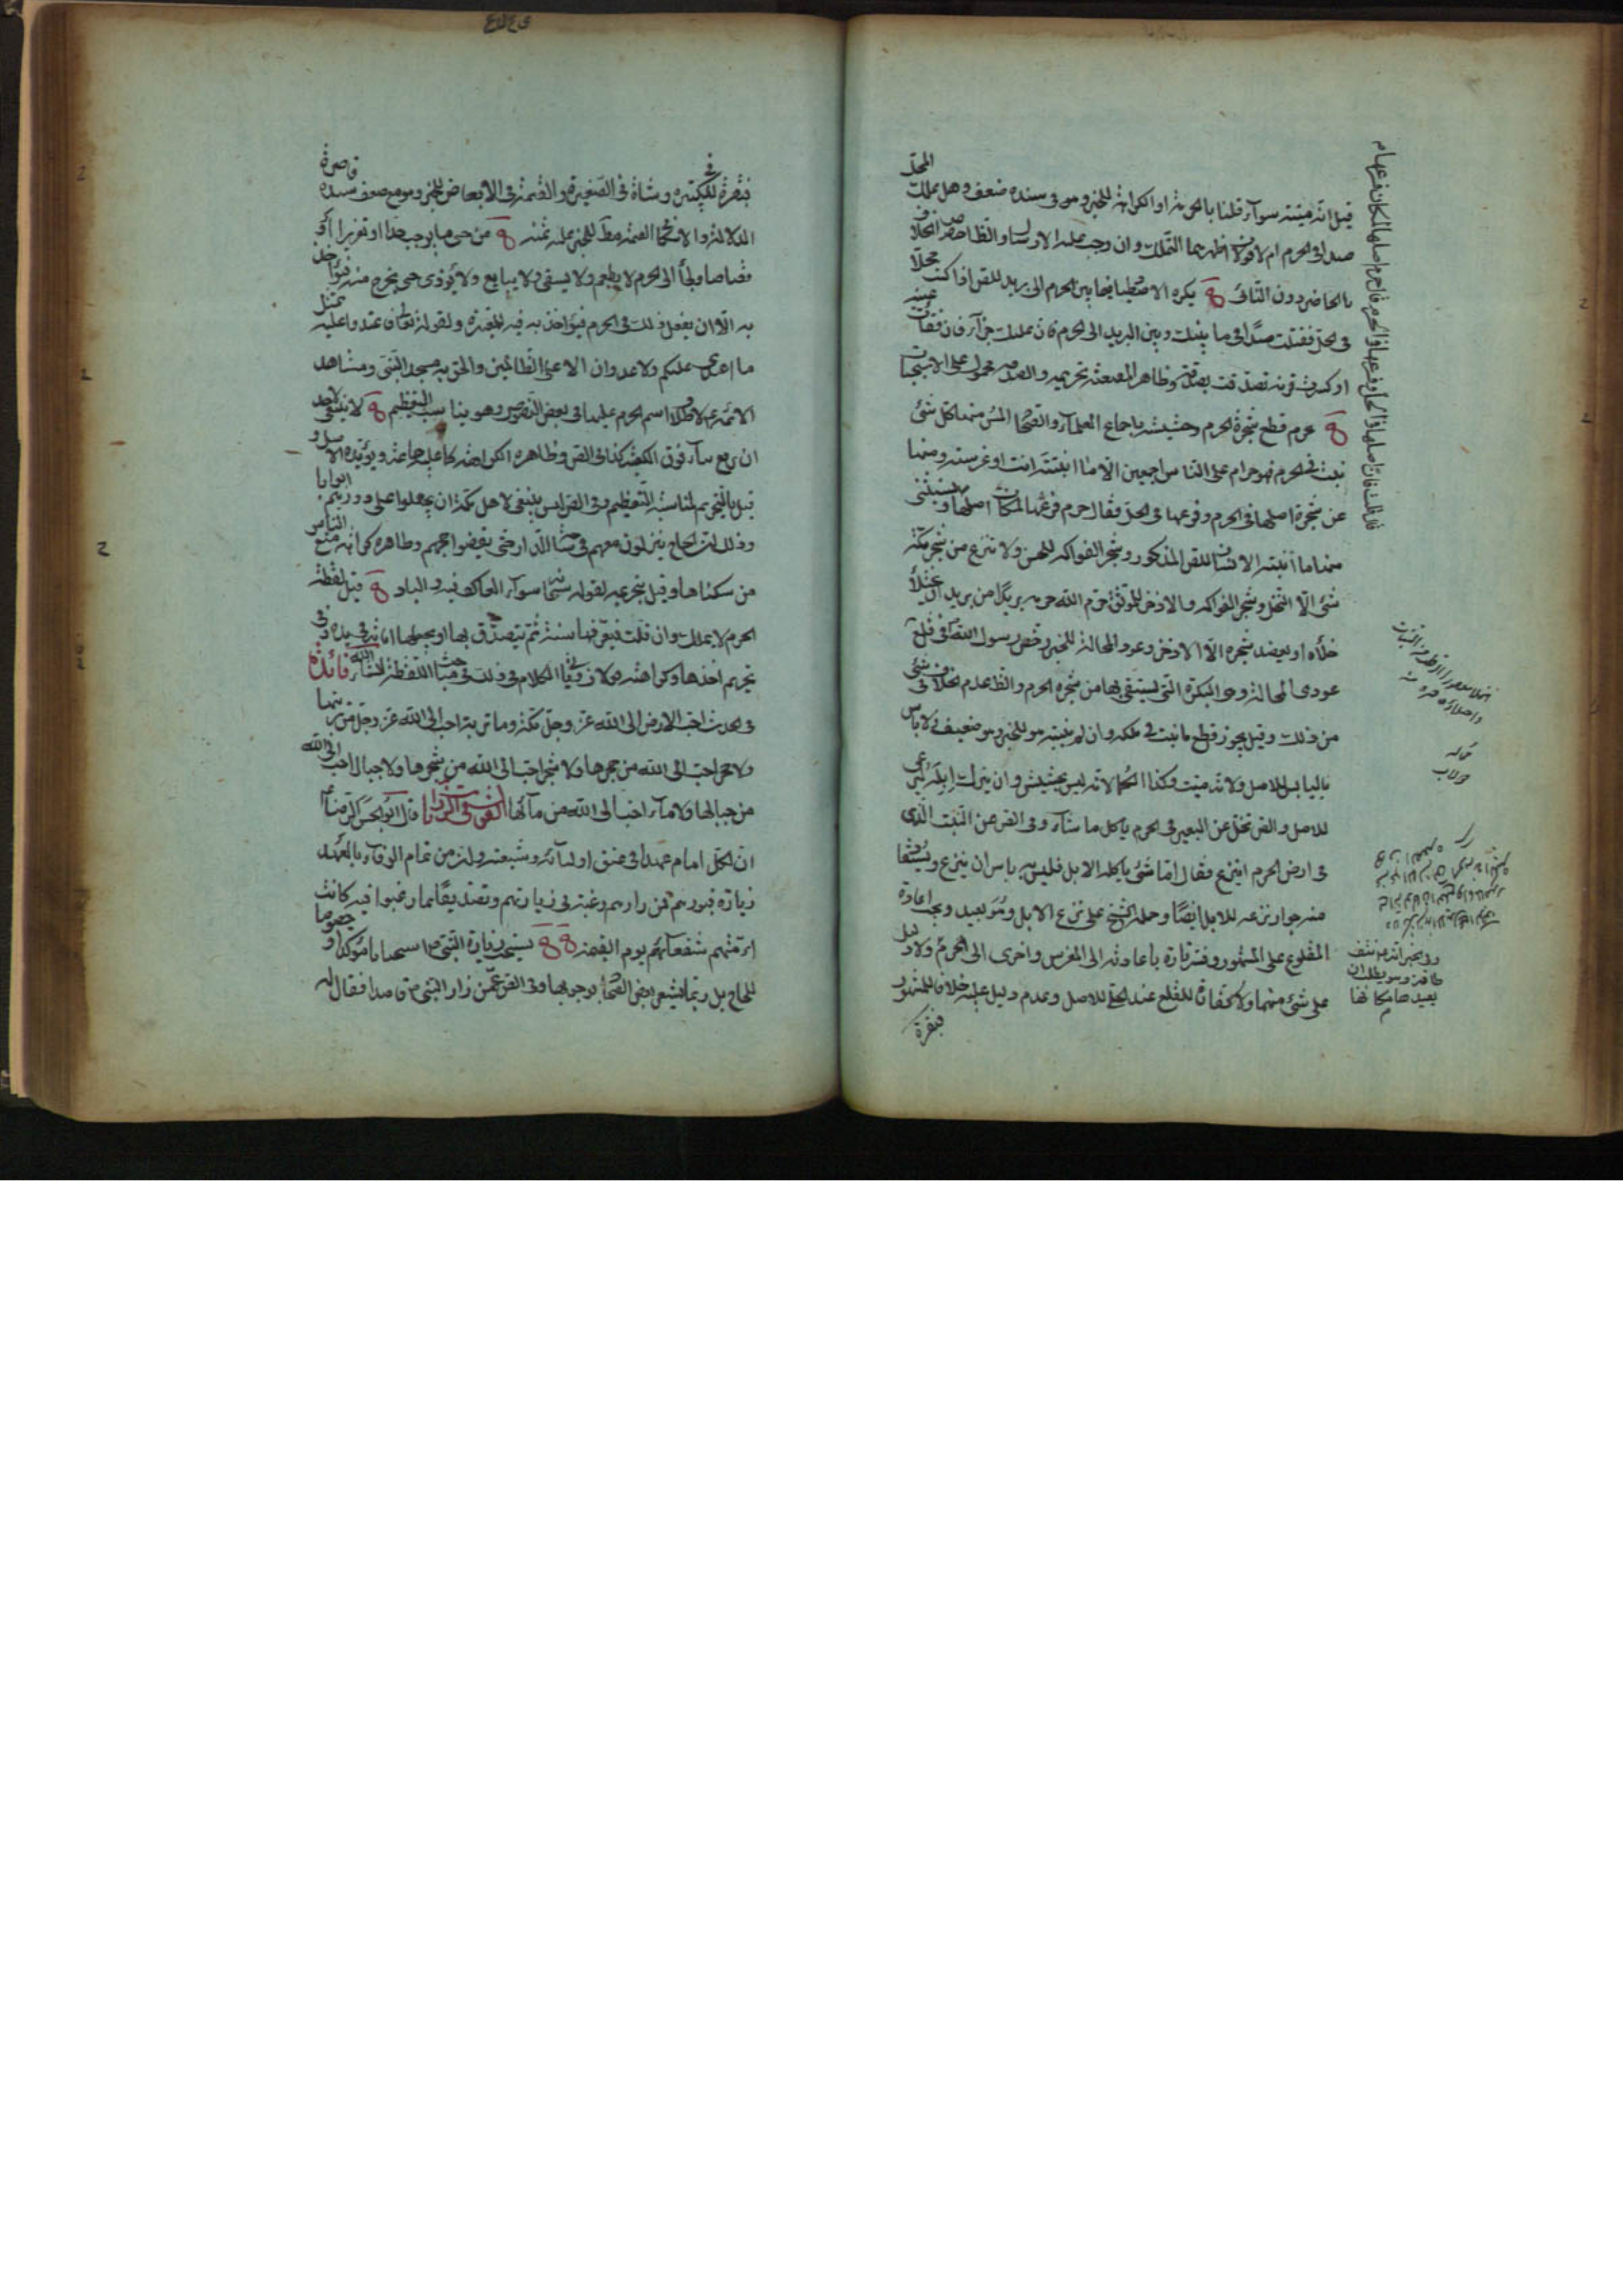 قيل انه ميتته سوآء قلنا بالحرمة او الكراهة للخبر وهو فى سنده ضعف وهل يملك المحلّ
صيدا فى الحرم ام لا قولان اظهرهما التملك وان وجب عليه الارسال والظاهر الخلاف
بالحاضر دون النائى يكره الاصطياد فيما بين الحرم الى بريد للنص اذا كنت محلّا
فى الحلّ فقتلت صيدا فى ما بينك وبين البريد الى الحرم فان عليك جزآءه فان فقأت عينه
او كسرت قرنه تصدقت بصدقة وظاهر المقنعة تحريمه والصدقة محمول على الاستحباب
يحرم قطع شجرة الحرم وحشيشه باجماع العلمآء والصحاح المس منها كل شئ
نبت فى الحرم فهو حرام على الناس اجمعين الا ما انبتته انت او غرسته ومنها
عن شجرة اصلها فى الحرم وفرعها فى الحلّ فقال حرم فرعها لمكان اصلها ويستثنى
منها ما انبته الانسان للنص المذكور وشجر الفواكه للحسن ولا تنزع من شجر مكة
شئ الّا النخل وشجر الفواكه والاذخر للموثق حرم الله حرمه بريدًا من بريد ان يختلأ
خلاه او يعضد شجره الّا الاذخر وعود المحالة للخبر رخص رسول الله فى قطع
عودى المحالة وهى البكرة التى يستقى بها من شجر الحرم والظ عدم الخلاف فى شئ
من ذلك وقيل يجوز قطع ما نبت فى ملكه وان لم ينبته هو للخبر وهو ضعيف ولا باس
باليابس للاصل ولانه ميت وكذا الكمأ لانه ليس بحشيش وان يترك ابله ترعى
للاصل والص تخلى عن البعير فى الحرم ياكل ما شآء وفى الص عن النبت الّذى
فى ارض الحرم اينزع فقال امّا شئ ياكله الابل فليس به باس ان ينزع ويستفاد
منه جواز نزعه للابل ايضًا وحمله الشيخ على نزع الابل وهو بعيد ويجب اعادة
المقلوع على المشهور وفسر تارة باعادته الى المغرس واخرى الى الحرم ولا دليل
على شئ منهما ولا كفارة للقلع عند الحلّى للاصل وعدم دليل عليه خلافا للمشهور
فبقرة
قلت فان اصلها فى الحل وفرعها فى الحرم قال حرم اصلها لمكان فرعها م
وفى الخبر انه من نتف
طاقة وهو يطلب ان
يعيدها مكانها
م
فبقرة فى الكبيرة وشاة فى الصغيرة والقيمة فى الابعاض للخبر وهو مع ضعف سنده قاصرة
الدلالة والاسكافى القيمة مط للخبر عليه ثمنه من جنى ما يوجب حدا او تعزيرا او
قصاصا ولجأ الى الحرم لا يطعم ولا يسقى ولا يبايع ولا يؤذى حتى يخرج منه فيؤخذ
به الّا ان يفعل ذلك فى الحرم فيؤاخذ به فيه للمعتبرة ولقوله تعالى فاعتدوا عليه بمثل
ما اعتدى عليكم ولا عدوان الا على الظالمين والحق به مسجد النبى ومشاهد
الائمة لاطلاق اسم الحرم عليها فى بعض النصوص وهو يناسب التعظيم لا ينبغى لاحد
ان يرفع بنآء فوق الكعبة كذا فى الص وظاهره الكراهة كما عليه جماعة ويؤيده الاصل و
قيل بالتحريم لمناسبة التعظيم وفى الص ليس ينبغى لاهل مكة ان يجعلوا على دورهم ابوابا
وذلك لان الحاج ينزلون معهم فى ساحة الدار حتى يقضوا حجهم وظاهره كراهة منع الناس
من سكناها وقيل بتحريمه لقوله سبحانه سوآء العاكف فيه والباد قيل لقطة
الحرم لا يملك وان قلت فيعرفها سنة ثم يتصدق بها او يجعلها امانة فى يده وفى
تحريم اخذها وكراهته قولان وياتى الكلام فى ذلك فى مباحث اللقطة انشآء الله فائدة
فى الحديث احب الارض الى الله عز وجل مكة وما تربة احب الى الله عز وجل من تربتها
ولا حجر احب الى الله من حجرها ولا شجر احب الى الله من شجرها ولا جبال احب الى الله
من جبالها ولا مآء احب الى الله من مآئها القول فى الزيارات قال ابو الحسن الرضا
ان لكل امام عهدا فى عنق اوليآئه وشيعته وان من تمام الوفآء بالعهد
زيارة قبورهم فمن زارهم رغبة فى زيارتهم وتصديقًا بما رغبوا فيه كانت
ائمتهم شفعآئهم يوم القيمة يستحب زيارة النبى ص استحبابا مؤكدا خصوصا
للحاج بل ربما يشعر بعض الصحاح بوجوبها وفى الص عمّن زار النبى قاصدا فقال له